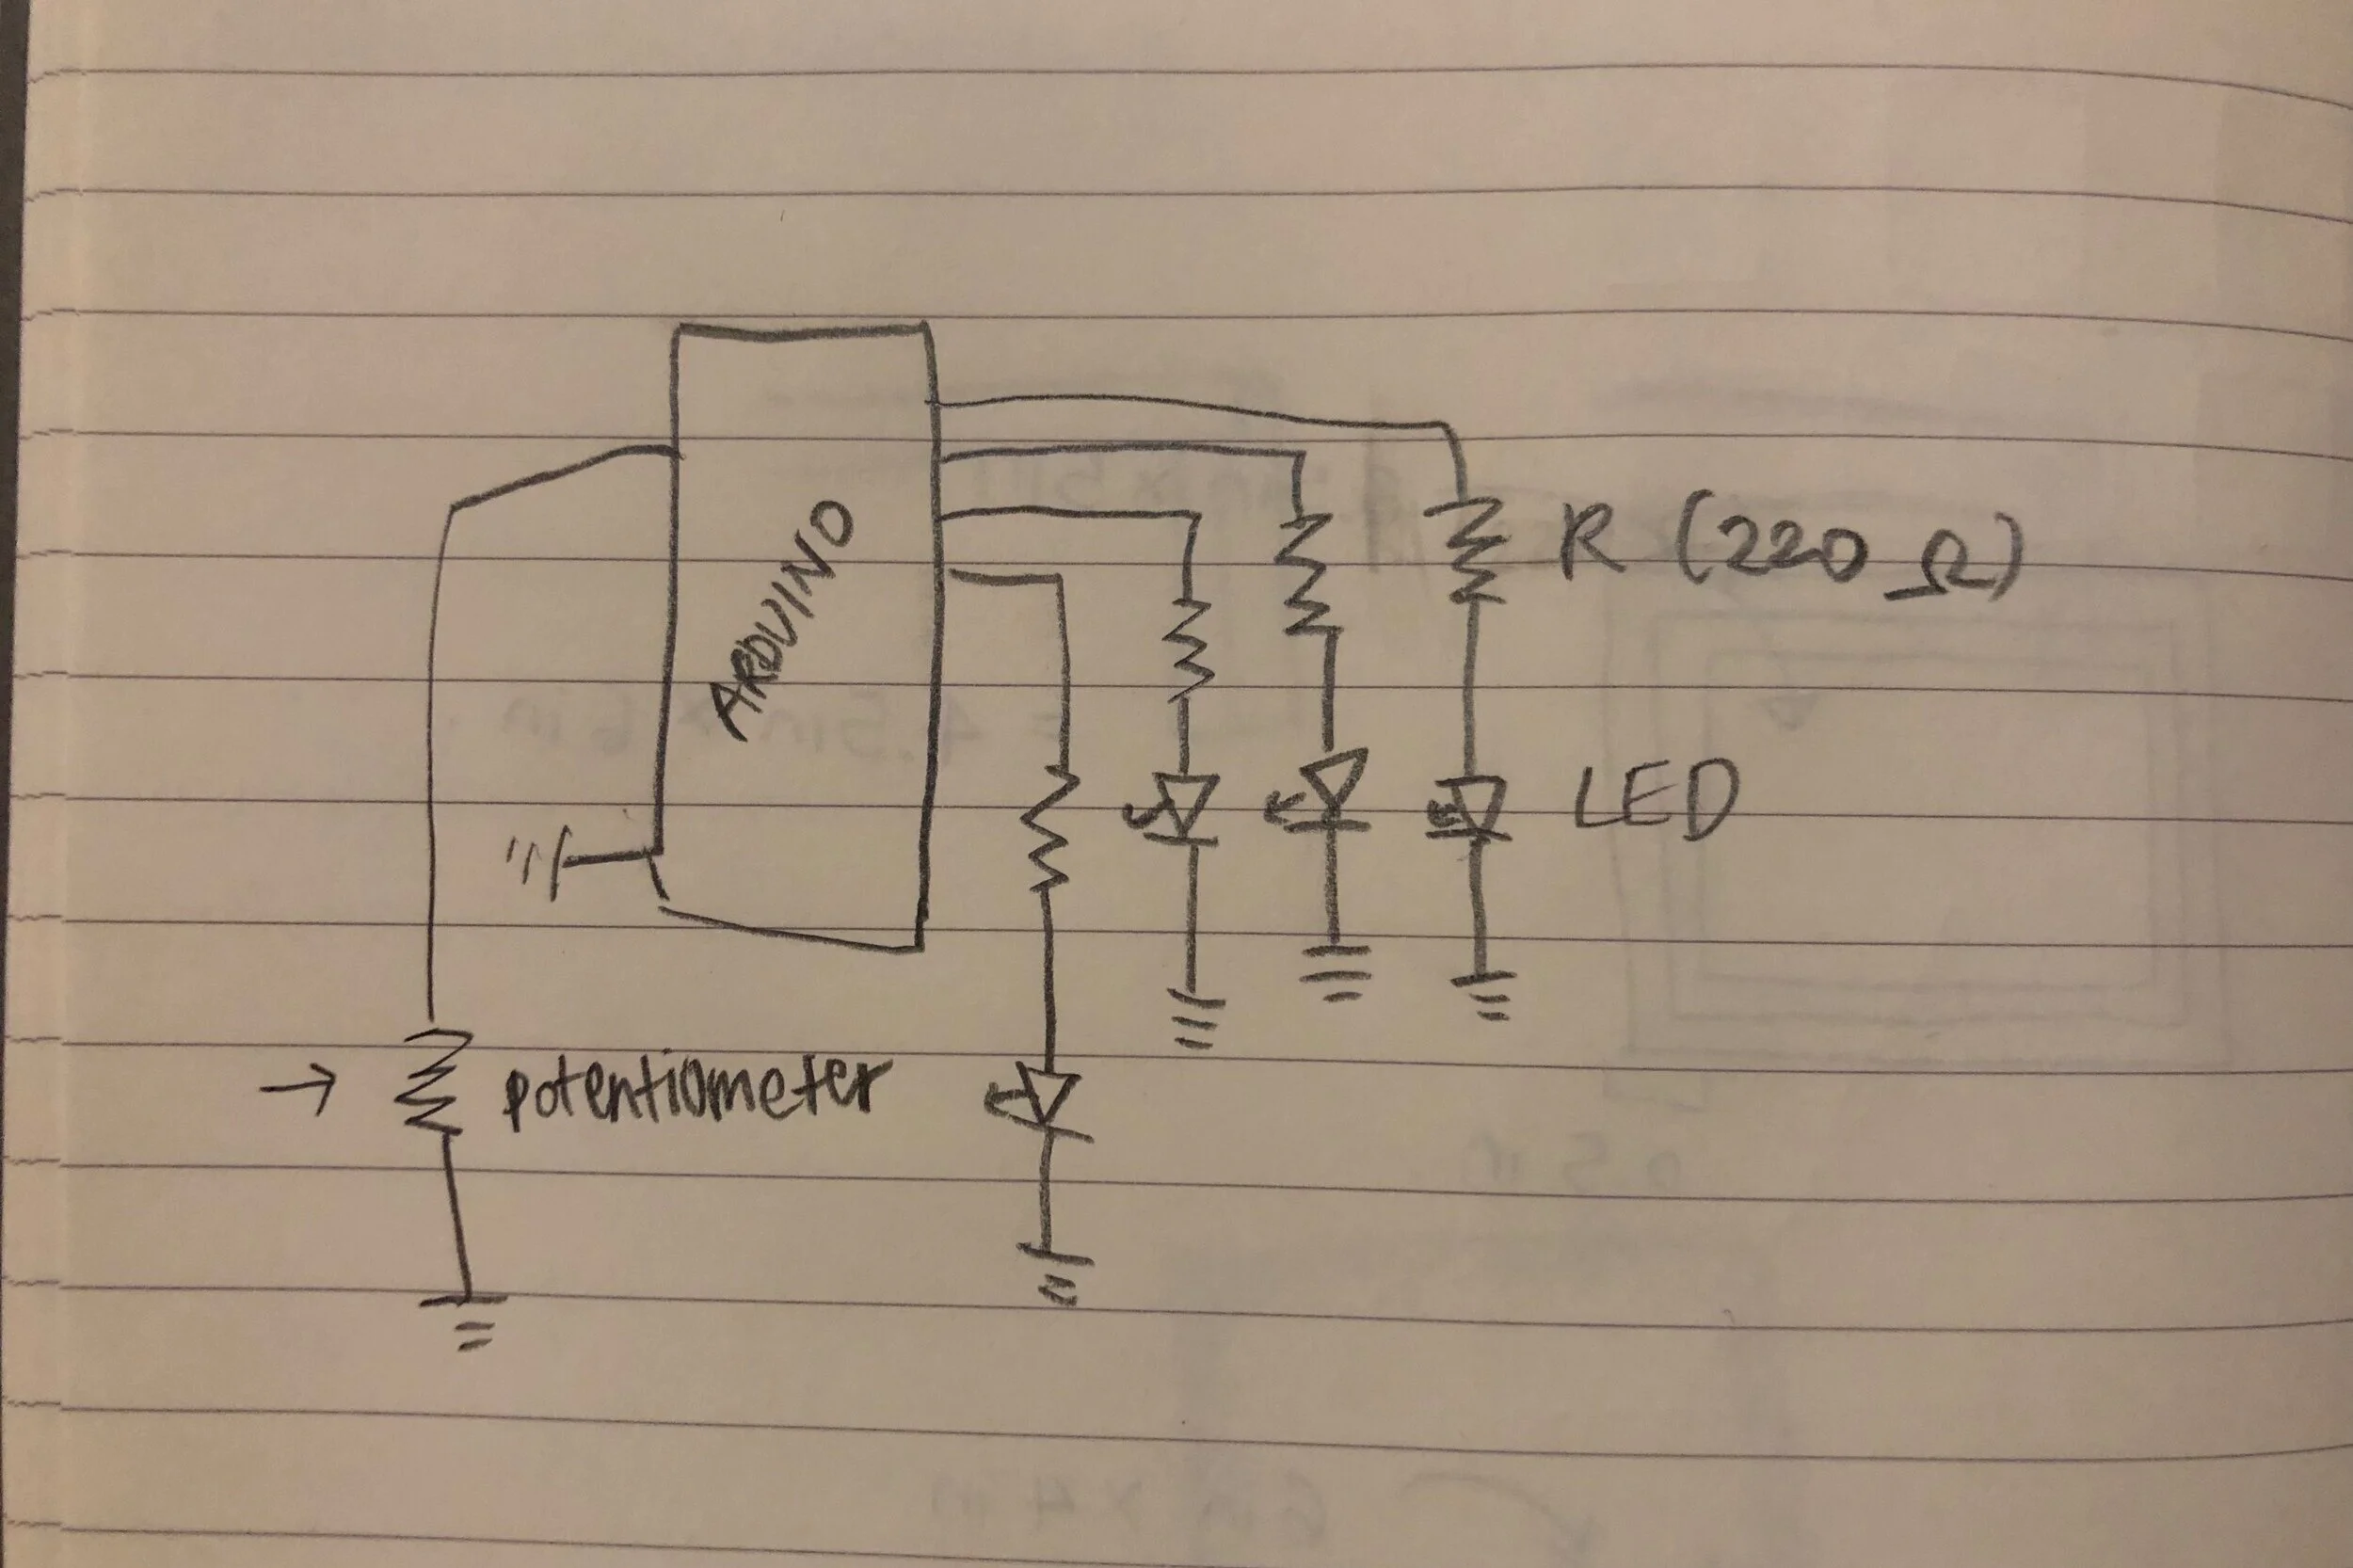 ARDUINO
R (220 Ω)
LED
potentiometer